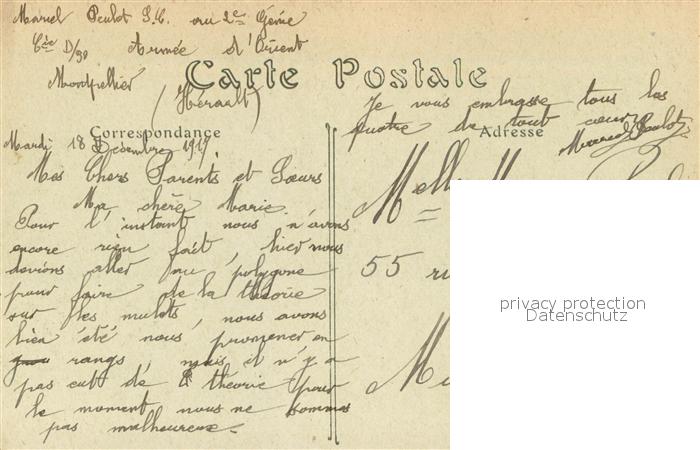 Marcel Peulot S.C. au 2e Génie
Cie D/90 Armée d'Orient
Montpellier
(Hérault)
Carte Postale
Je vous embrasse tous les
quatre de tout coeur
Marcel Peulot
Correspondance
Adresse
Mardi 18 Décembre 1917
Mes Chers Parents et Soeurs
Ma chère Marie
Pour l'instant nous n'avons
encore rien fait, hier nous
devions aller au polygone
pour faire de la théorie
sur les mulots, nous avons
bien été nous promener en
rangs, mais il n'y a
pas eut de théorie pour
le moment nous ne sommes
pas malheureux.
Melle
55
privacy protection
Datenschutz